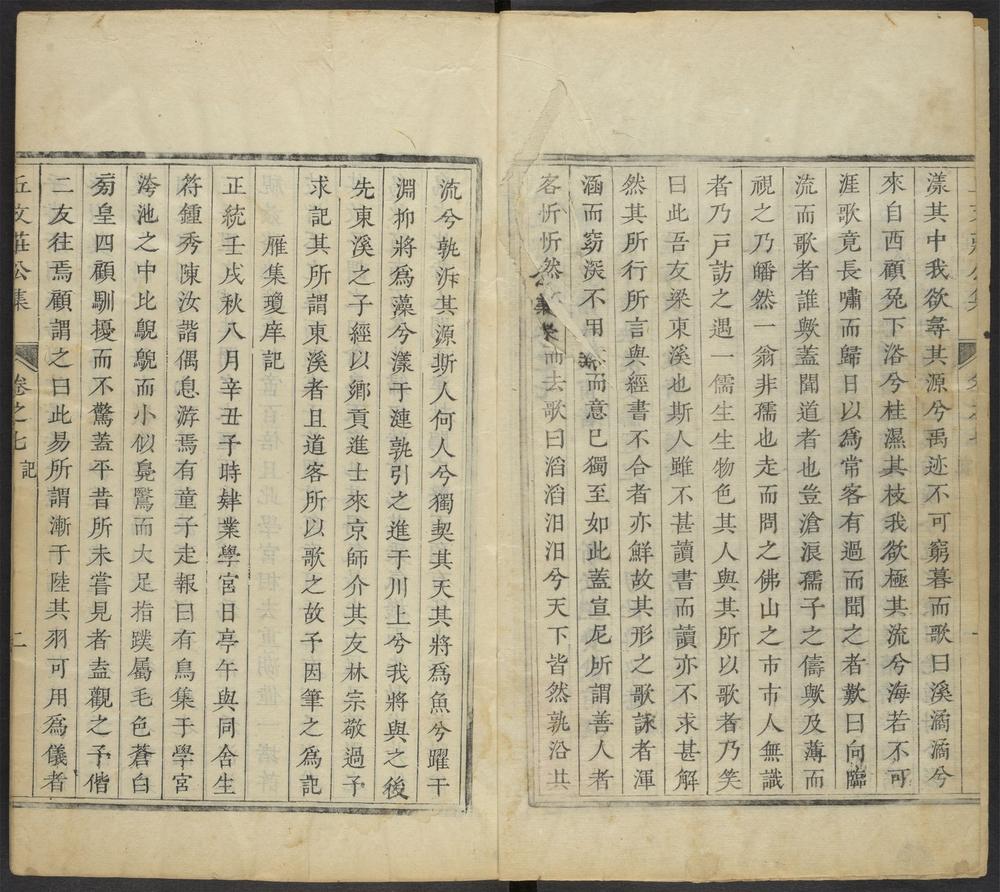 漾其中我欲尋其源兮禹迹不可窮暮而歌曰溪濔濔兮
來自西顧兔下浴兮桂濕其枝我欲極其流兮海若不可
涯歌竟長嘯而歸日以為常客有過而聞之者歎曰向臨
流而歌者誰歟蓋聞道者也豈滄浪孺子之儔歟及薄而
視之乃皤然一翁非孺也走而問之佛山之市市人無識
者乃戸訪之遇一儒生生物色其人與其所以歌者乃笑
曰此吾友梁東溪也斯人雖不甚讀書而讀亦不求甚解
然其所行所言與經書不合者亦鮮故其形之歌詠者渾
涵而窈深不用而意已獨至如此蓋宣尼所謂善人者
客忻忻然而去歌曰滔滔汨汨兮天下皆然孰沿其
流兮孰泝其源斯人何人兮獨契其天其將為魚兮躍干
淵抑將為藻兮漾于漣孰引之進于川上兮我將與之後
先東溪之子經以鄉貢進士來京師介其友林宗敬過予
求記其所謂東溪者且道客所以歌之故予因筆之為記
雁集瓊庠記
正統壬戌秋八月辛丑子時肄業學宮日亭午與同舍生
符鍾秀陳汝諧偶息游焉有童子走報曰有鳥集于學宮
洿池之中比鶃鶃而小似鳧鷖而大足指蹼屬毛色蒼白
匑皇四顧馴擾而不驚蓋平昔所未嘗見者盍觀之予偕
二友往焉顧謂之曰此易所謂漸于陸其羽可用為儀者
丘文莊公集 卷之七 記 二